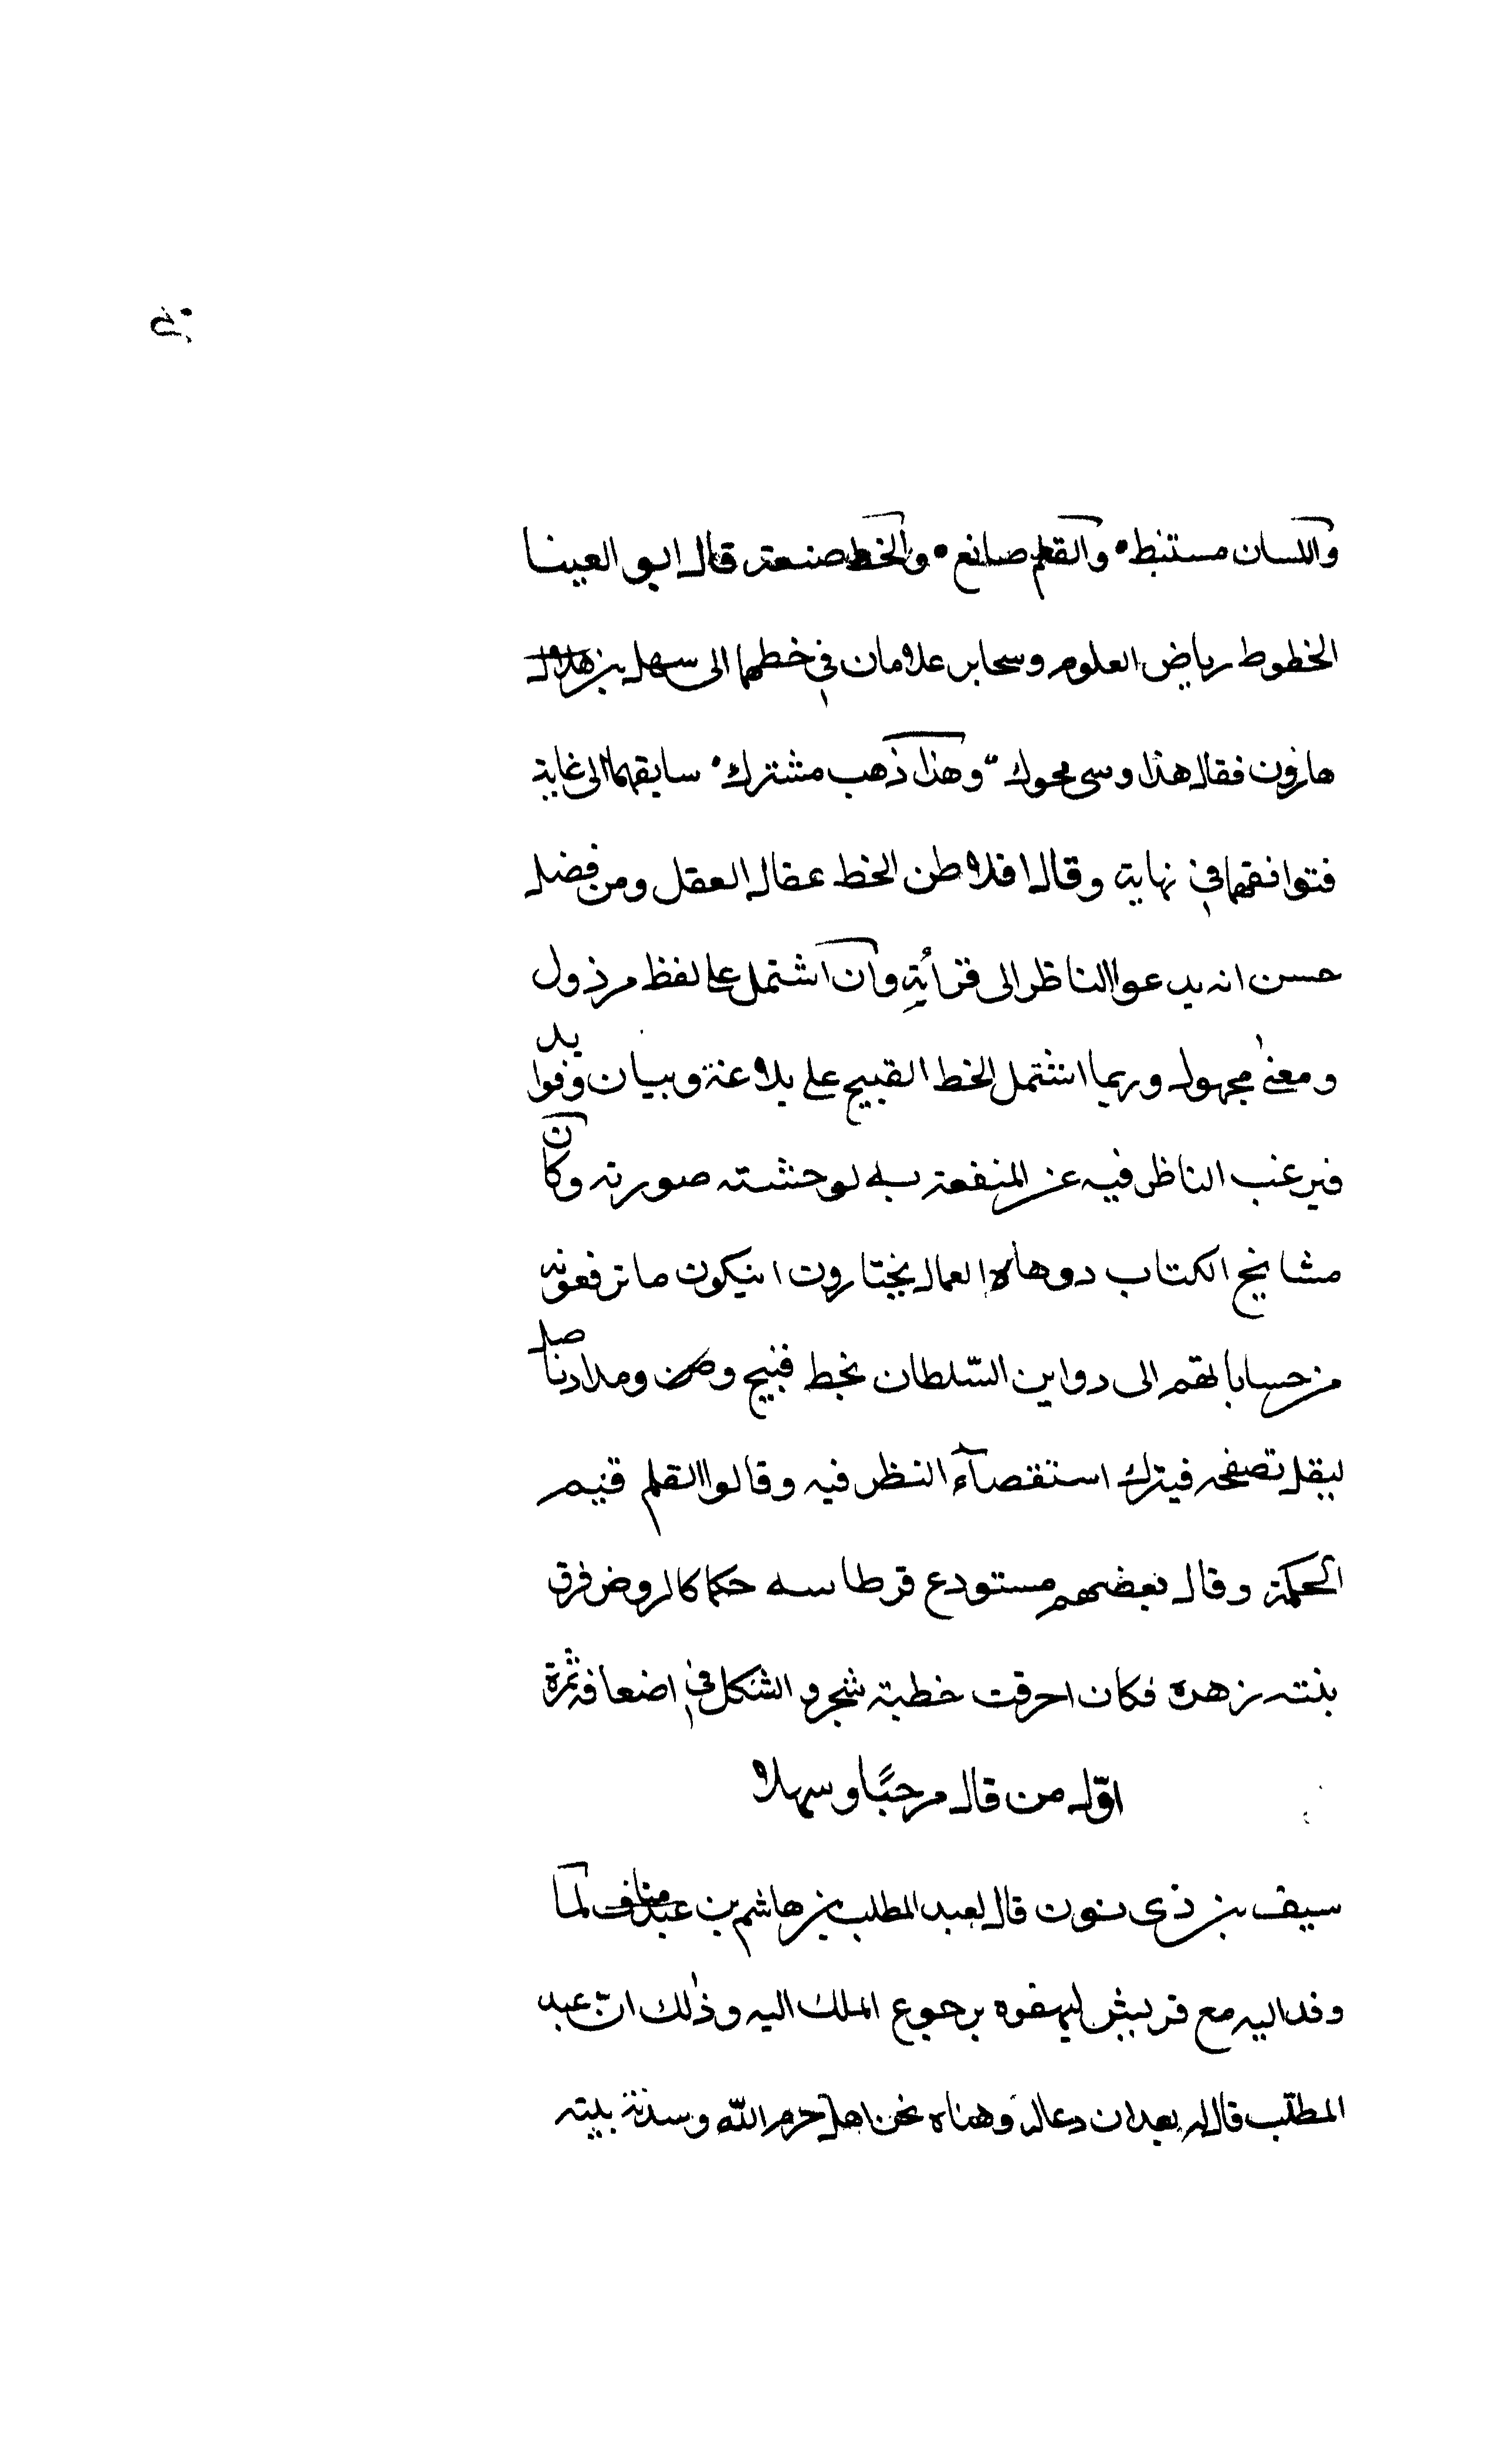 واللسان مستنبط • والقلم صانع • والخط صنعة قال ابو العينا
الخطوط رياض العلوم وسحابر علامان في خطهما الى سهل بن هلال
هارون فقال هذا وسى محوك وهذا ذهب مشترك • سابقهما الى غاية
فتوافقهما في نهاية وقال افلاطن الخط عقال العقل ومن فضل
حسن انه يدعوا الناظر الى قرأته وان اشتمل على لفظ مرذول
ومعنى مجهول وربما اشتمل الخط القبيح على بلاغة وبيان وفوايد
فيرغب الناظر فيه عن المنفعة به لوحشته صورته وكان
مشايخ الكتاب دوهاه العمال يختارون انيكون ما ترفعونه
من حساباتهم الى دواين السّلطان بخط قبيح ومداد ناصل
ليقل تصفحه فيترك استقصآء النظر فيه وقالوا القلم قيم
الحكمة وقال بعضهم مستودع قرطاسه حكما كالروض فرق
بنته زهره فكان احرقت خطبة شجر والشكل في اضعافه ثمرة
اوّل من قال مرحبًا وسهلا
سيف بن ذى نون قال لعبد المطلب بن هاشم بن عبد مناف لما
وفد اليه مع قريش ليهنوه برجوع الملك اليه وذلك انّ عبد
المطلّب قال له بعد ان دعاله وهناه نحن اهل حرم الله وسدنة بيته